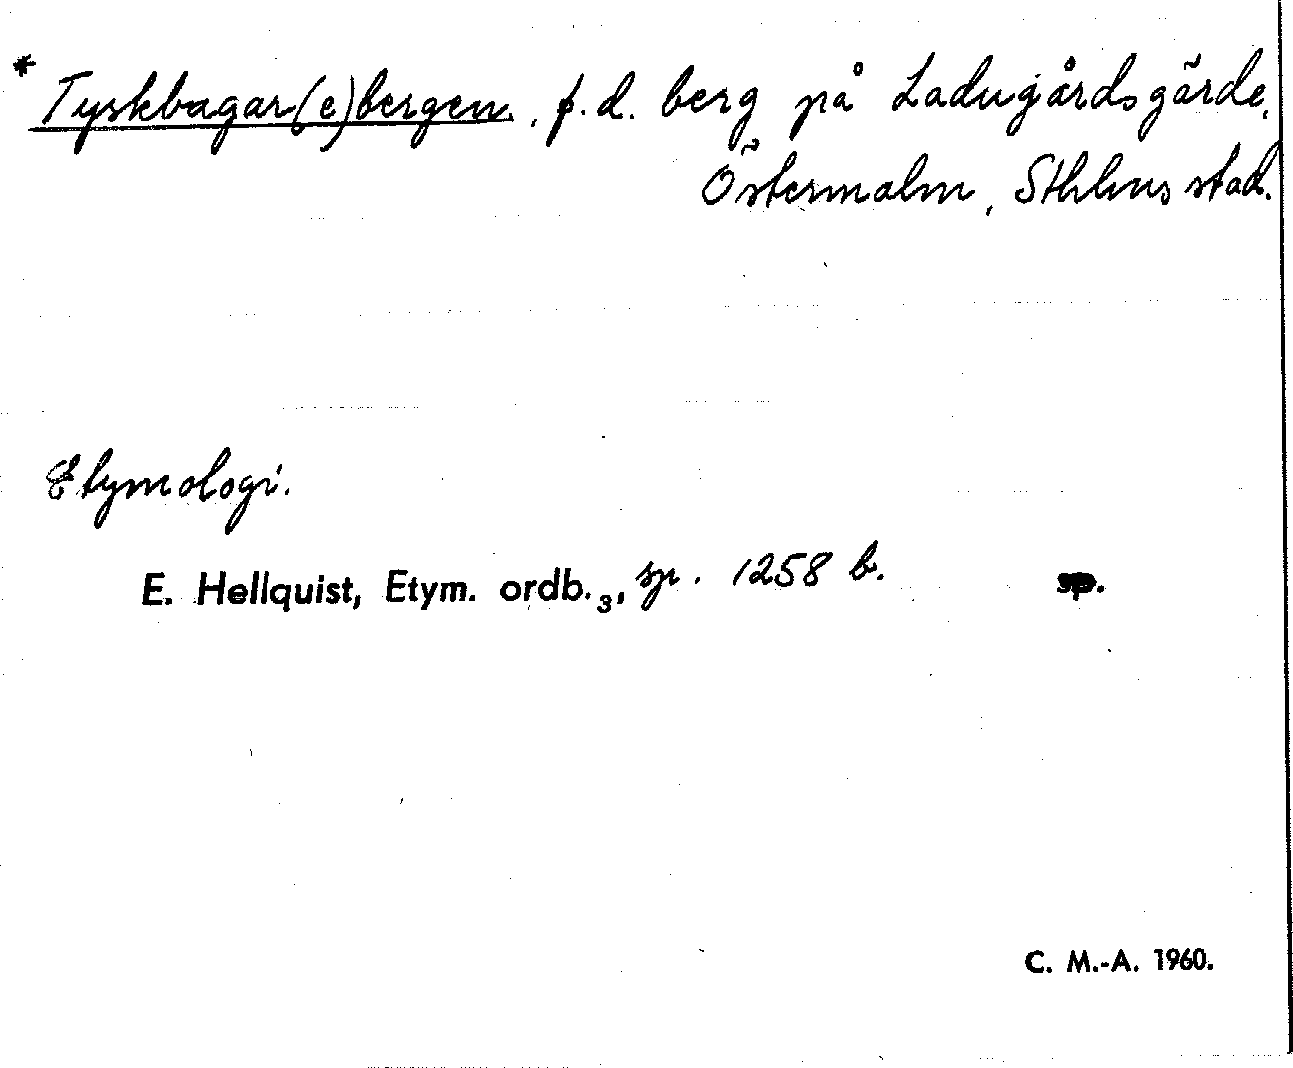 * Tyskbagar(e)bergen., f.d. berg på Ladugårdsgärde,
Östermalm, Sthlms stad.
Etymologi.
E. Hellquist, Etym. ordb.₃, sp. 1258 b. sp.
C. M.-A. 1960.